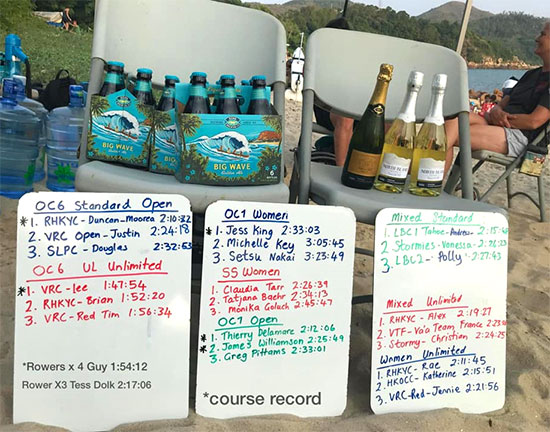 BIG WAVE
Golden Ale
BIG WAVE
Golden Ale
OC6 Standard Open
*1. RHKYC - Duncan - Moorea 2:10:32
2. VRC Open - Justin 2:24:18
3. SLPC - Douglas 2:32:53
OC6 UL Unlimited
*1. VRC - Lee 1:47:54
2. RHKYC - Brian 1:52:20
3. VRC - Red Tim 1:56:34
*Rowers x 4 Guy 1:54:12
Rower X3 Tess Dolk 2:17:06
OC1 Women
*1. Jess King 2:33:03
2. Michelle Key 3:05:45
3. Setsu Nakai 3:23:49
SS Women
1. Claudia Tarr 2:26:39
2. Tatjana Baehr 2:34:13
3. Monika Golach 2:45:47
OC1 Open
*1. Thierry Delamare 2:12:06
*2. James Williamson 2:25:49
3. Greg Pittams 2:33:01
*course record
Mixed Standard
1. LBC1 Tahoe - Andrew 2:15:
2. Stormies - Vanessa - 2:26:23
3. LBC2 - Polly - 2:27:43
Mixed Unlimited
1. RHKYC - Alex 2:19:27
2. VTF - Va'a Team France 2:23:
3. Stormy - Christien 2:24:25
Women Unlimited
1. RHKYC - Rae 2:11:45
2. HKOCC - Katherine 2:15:51
3. VRC - Red - Jennie 2:21:56